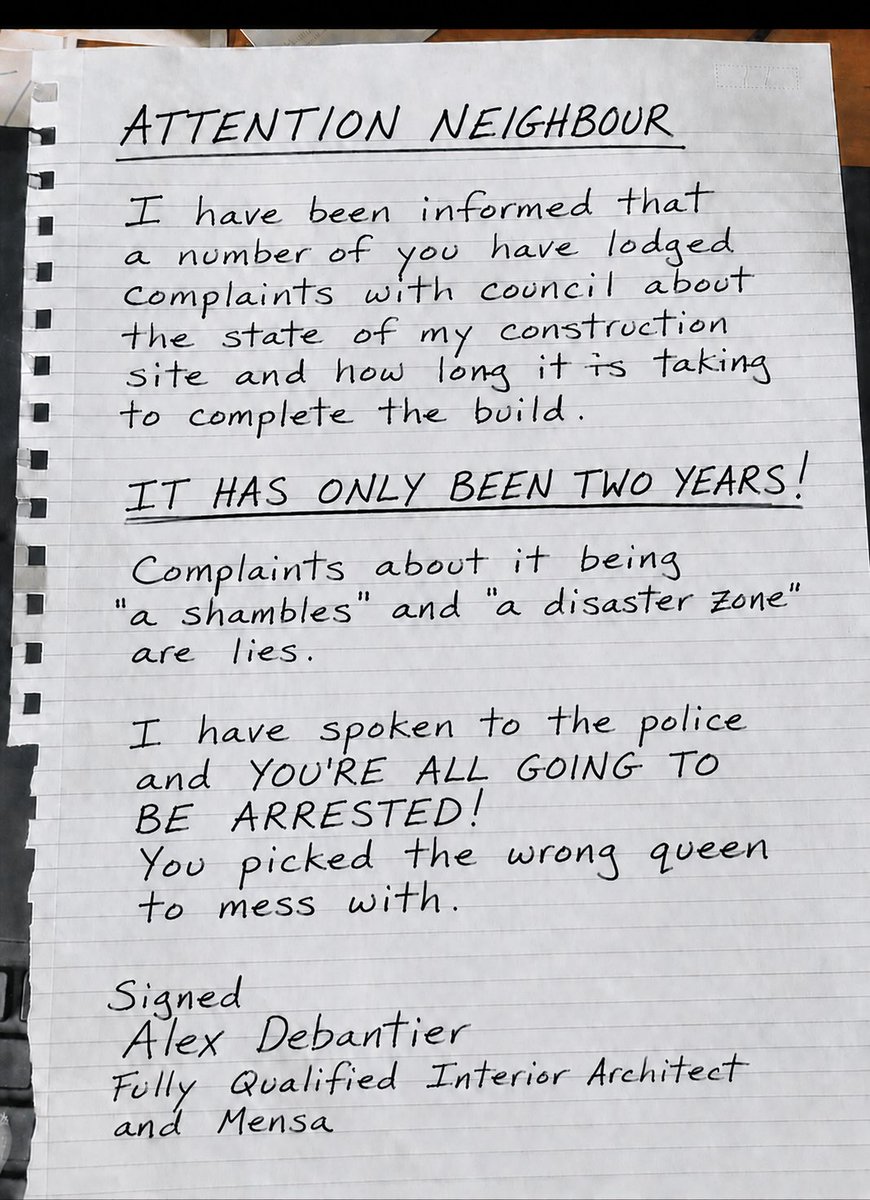 ATTENTION NEIGHBOUR
I have been informed that
a number of you have lodged
complaints with council about
the state of my construction
site and how long it is taking
to complete the build.
IT HAS ONLY BEEN TWO YEARS!
Complaints about it being
"a shambles" and "a disaster zone"
are lies.
I have spoken to the police
and YOU'RE ALL GOING TO
BE ARRESTED!
You picked the wrong queen
to mess with.
Signed
Alex Debantier
Fully Qualified Interior Architect
and Mensa